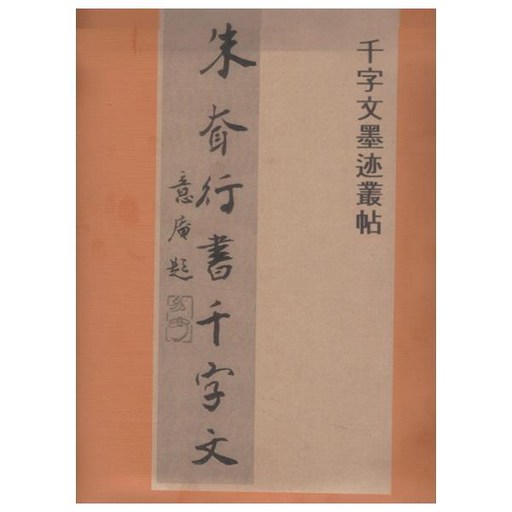 千字文墨迹叢帖
朱耷行書千字文
意庵題